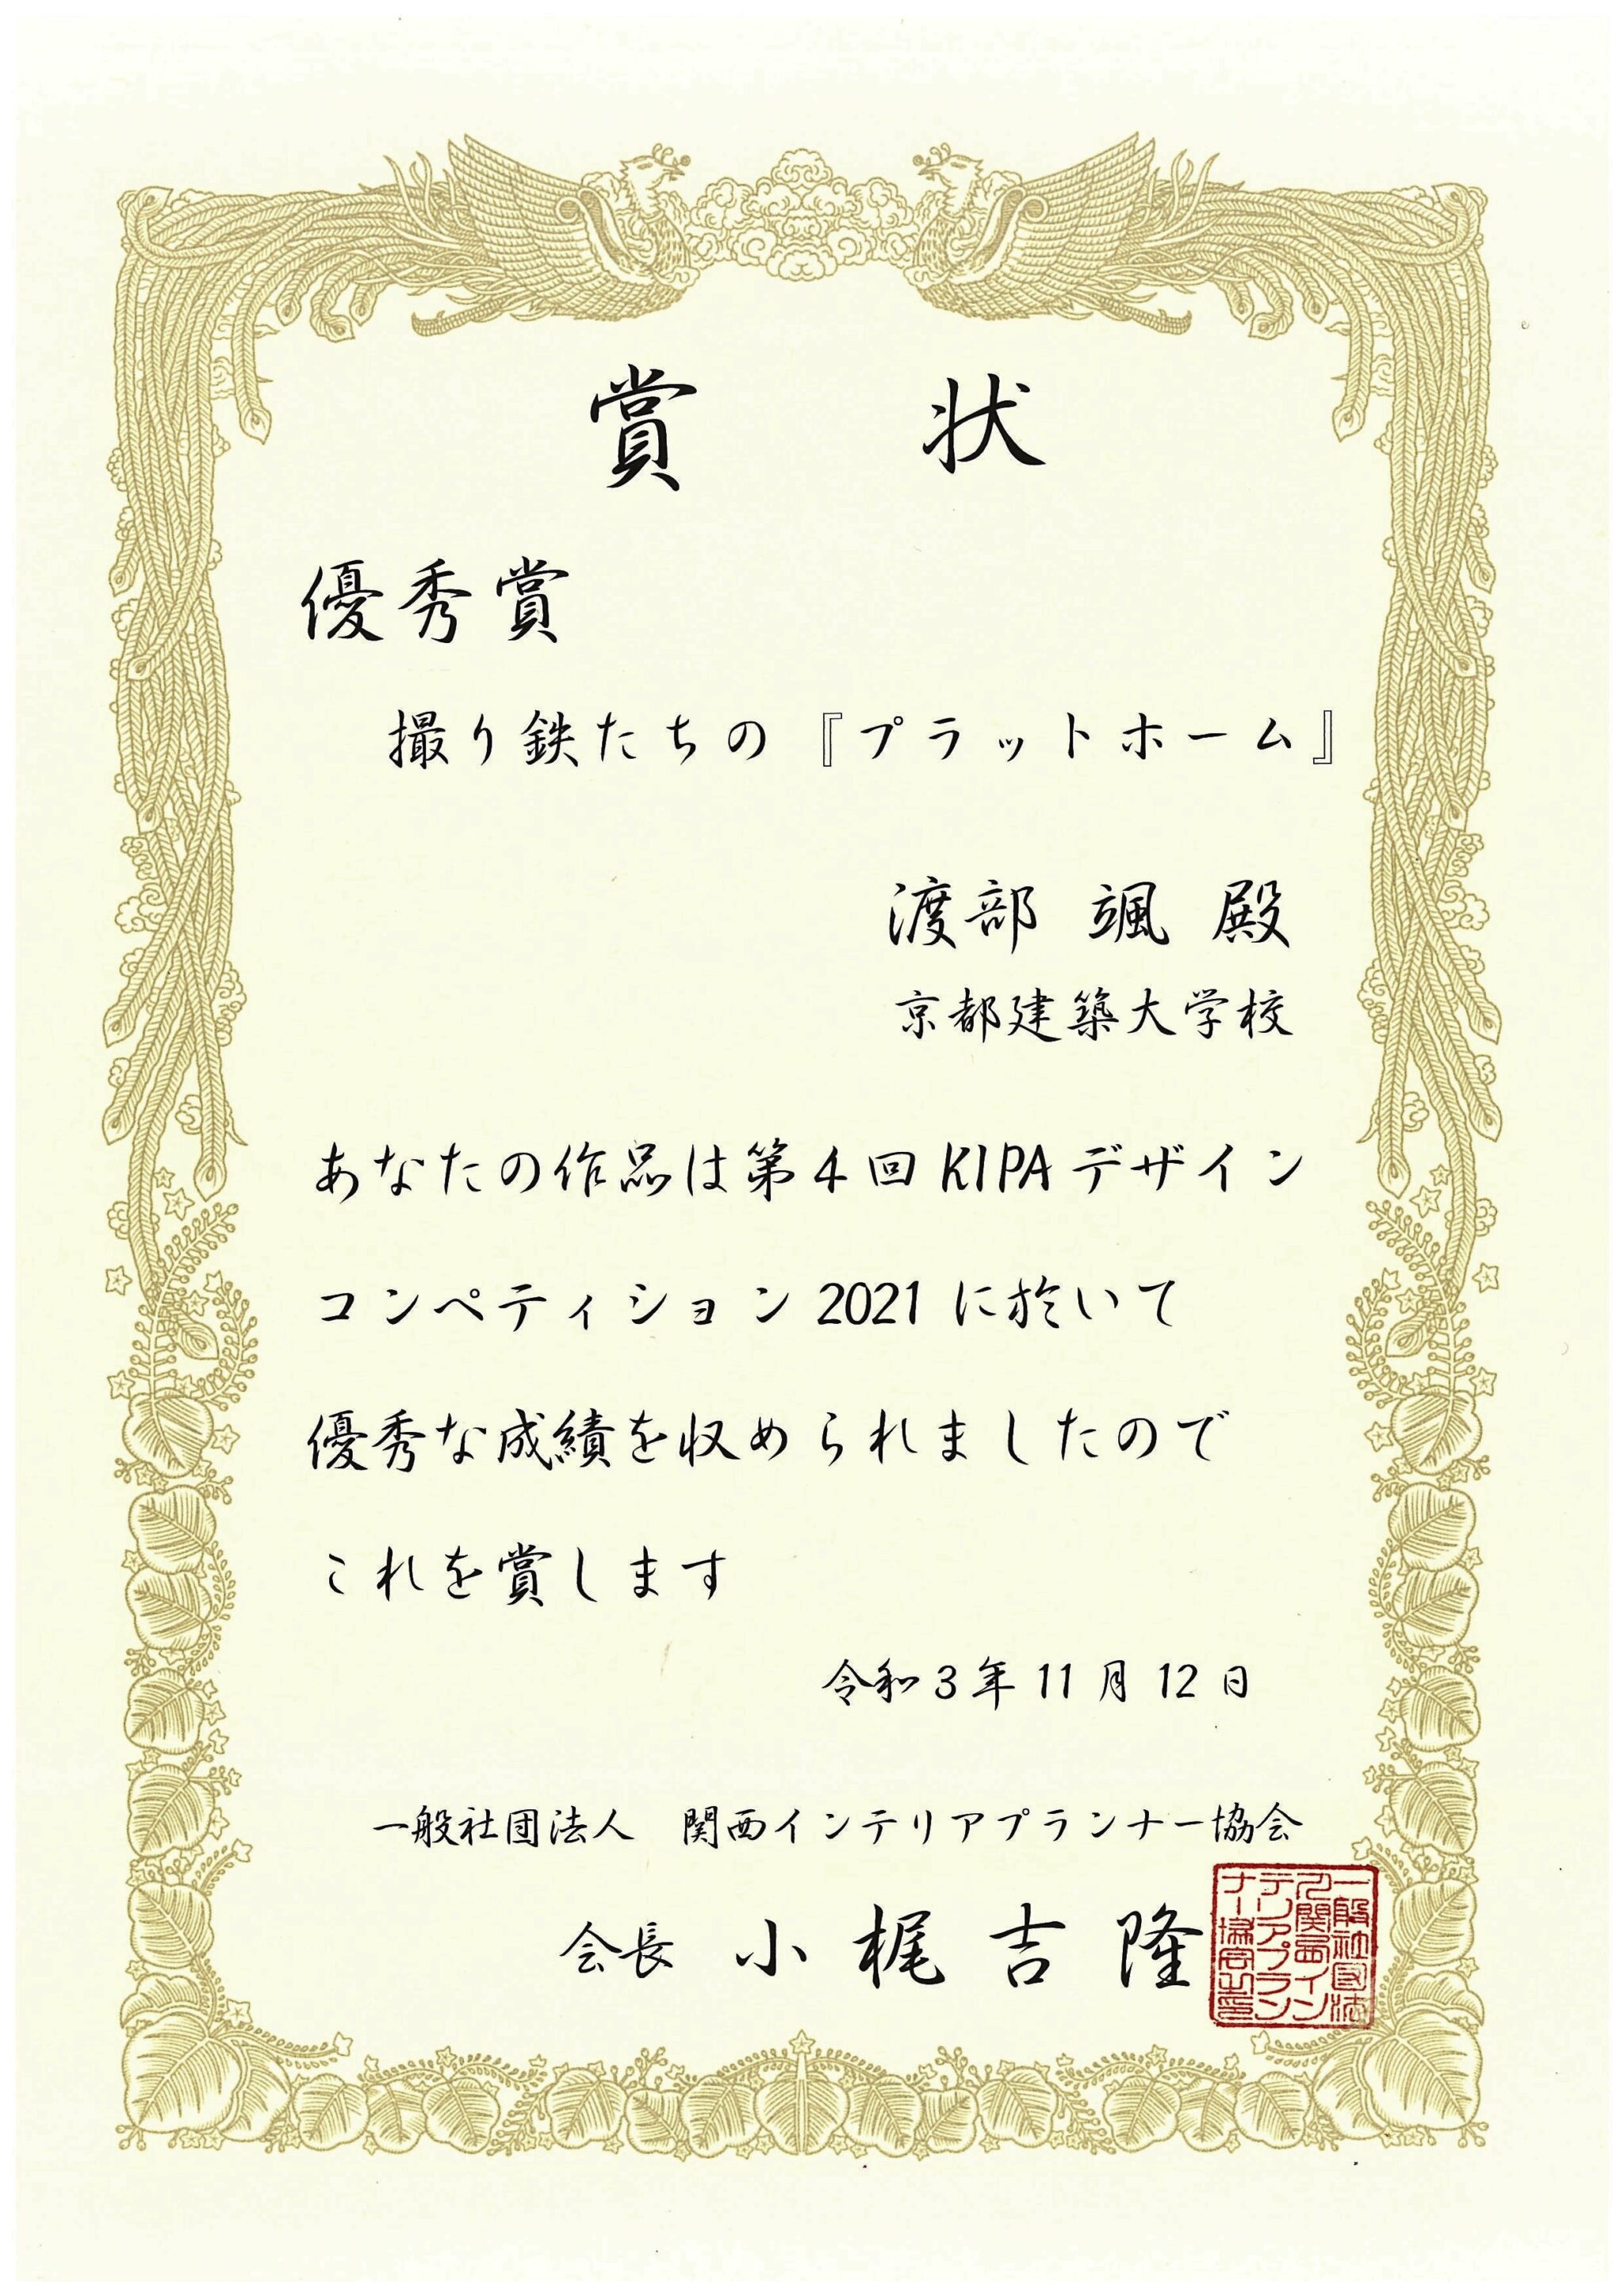 賞 状
優秀賞
撮り鉄たちの『プラットホーム』
渡部 颯 殿
京都建築大学校
あなたの作品は第4回KIPAデザイン
コンペティション2021に於いて
優秀な成績を収められましたので
これを賞します
令和3年11月12日
一般社団法人 関西インテリアプランナー協会
会長 小梶吉隆
一般社団法
人関西イン
テリアプラン
ナー協会之印